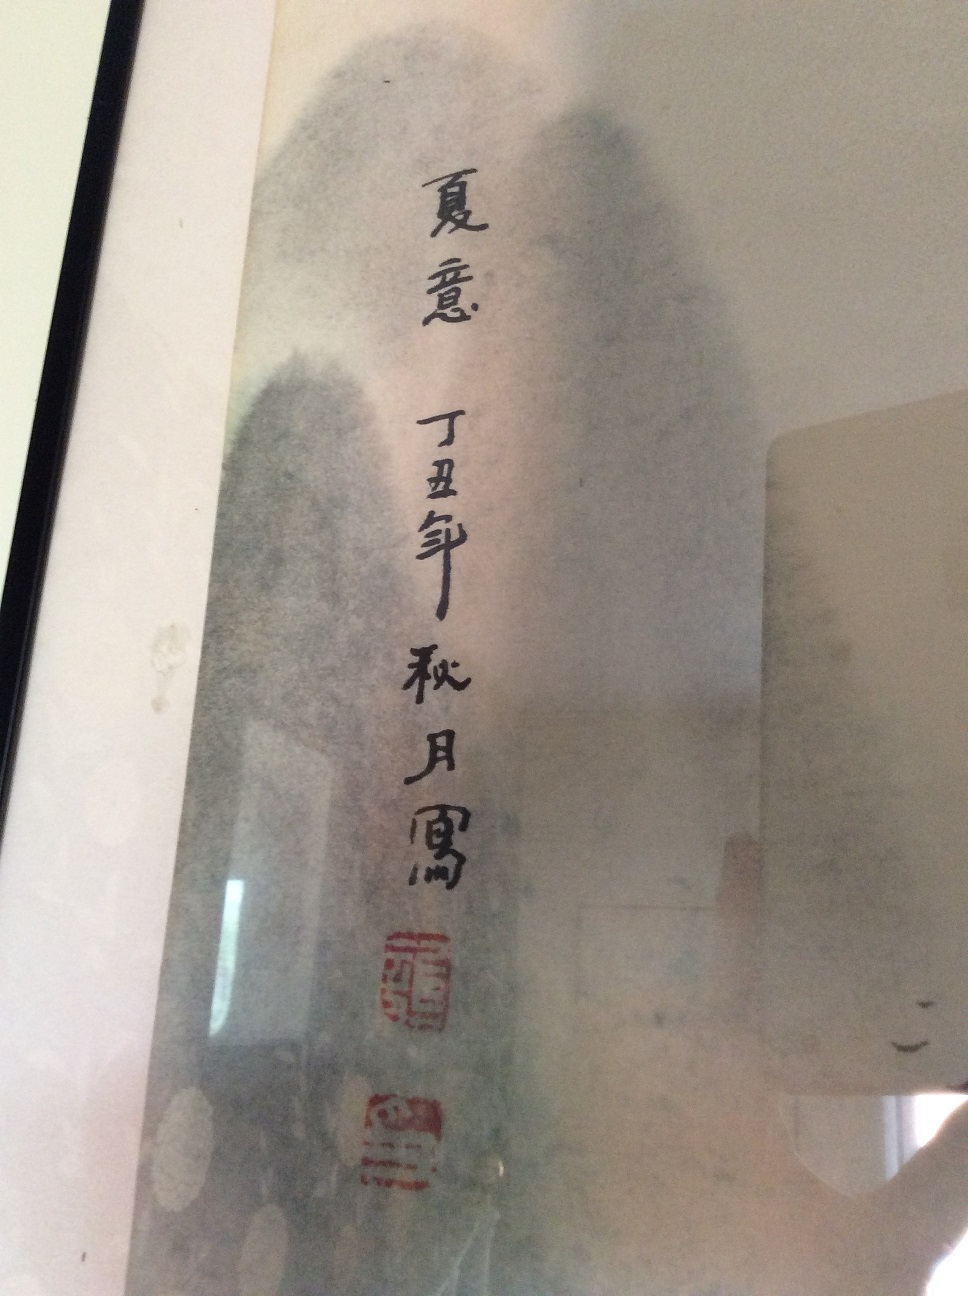 夏意 丁丑年秋月寫